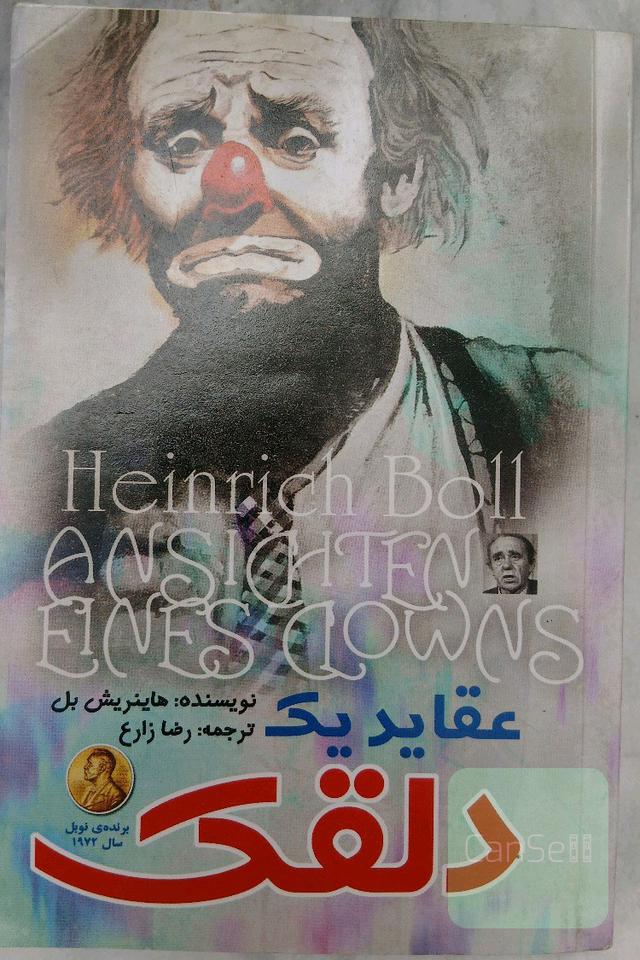 Heinrich Boll
ANSICHTEN
EINES CLOWNS
عقاید یک
دلقک
نویسنده: هاینریش بل
ترجمه: رضا زارع
برنده‌ی نوبل
سال ۱۹۷۲
CanSell